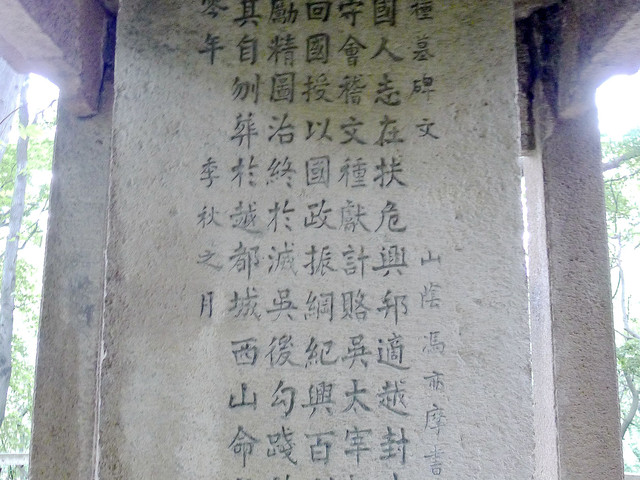 種墓碑文 山陰馮亦摩書
國人志在扶危興邦適越封
守會稽文種獻計賂吳太宰
回國授以國政振綱紀興百
勵精圖治終於滅吳後勾踐
其自刎葬於越都城西山命
零年 季秋之月